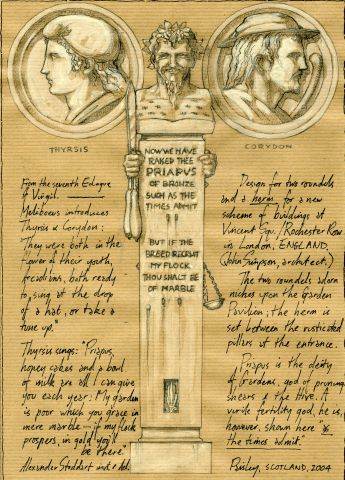 THYRSIS
CORYDON
NOW WE HAVE
RAISED THEE
PRIAPUS
OF BRONZE
SUCH AS THE
TIMES ADMIT
BUT IF THE
BREED RECRUIT
MY FLOCK
THOU SHALT BE
OF MARBLE
From the seventh Eclogue
of Virgil.
Meliboeus introduces
Thyrsis & Corydon:
They were both in the
flower of their youth,
Arcadians, both ready
to sing at the drop
of a hat, or take a
tune up."
Thyrsis sings: "Priapus,
honey cakes and a bowl
of milk are all I can give
you each year: My garden
is poor which you grace in
mere marble – if my flock
prospers, in gold you'll
be there."
Alexander Stoddart inv. & del.
Design for two roundels
and a herm for a new
scheme of buildings at
Vincent Sqr. / Rochester Row
in London, ENGLAND,
(John Simpson, architect.)
The two roundels adorn
niches upon the Garden
Pavilion; the herm is
set between the rusticated
pillars at the entrance.
Priapus is the deity
of Gardens, god of pruning
shears & the Hive. A
virile fertility god, he is,
however, shown here "as
the times admit."
Paisley, SCOTLAND, 2004